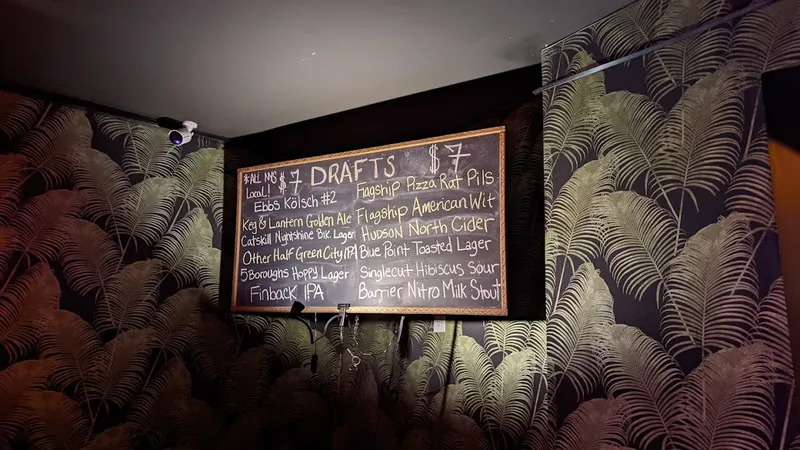 *ALL NYS Local! $7 DRAFTS $7
Ebbs Kölsch #2
Keg & Lantern Golden Ale
Catskill Nightshine Blk. Lager
Other Half Green City IPA
5 Boroughs Hoppy Lager
Finback IPA
Flagship Pizza Rat Pils
Flagship American Wit
Hudson North Cider
Blue Point Toasted Lager
Singlecut Hibiscus Sour
Barrier Nitro Milk Stout